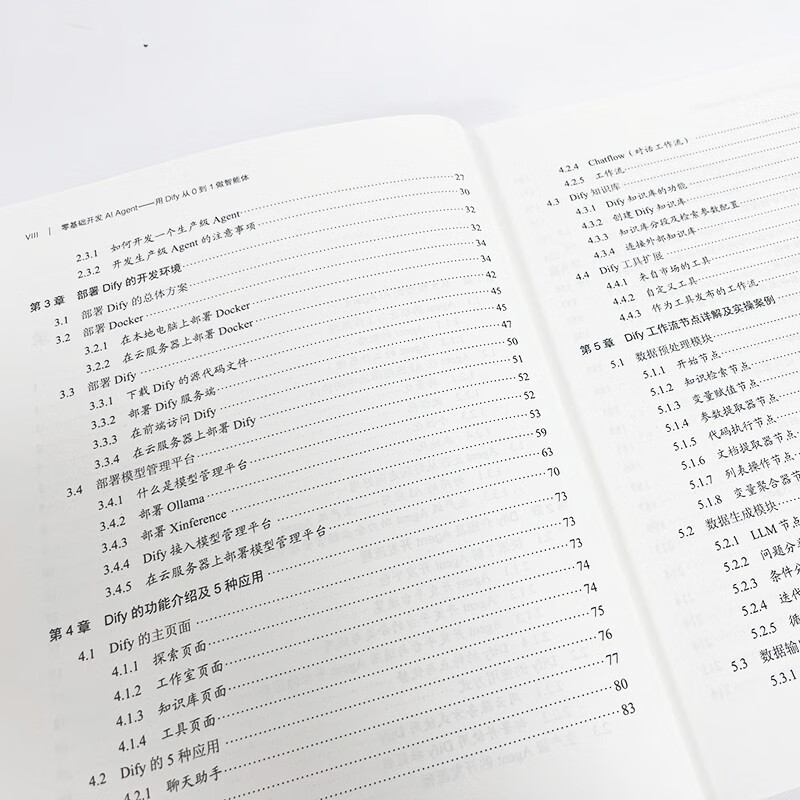 VIII | 零基础开发 AI Agent——用 Dify 从 0 到 1 做智能体
2.3.1 如何开发一个生产级 Agent 27
2.3.2 开发生产级 Agent 的注意事项 30
第 3 章 部署 Dify 的开发环境 32
3.1 部署 Dify 的总体方案 32
3.2 部署 Docker 34
3.2.1 在本地电脑上部署 Docker 34
3.2.2 在云服务器上部署 Docker 42
3.3 部署 Dify 45
3.3.1 下载 Dify 的源代码文件 45
3.3.2 部署 Dify 服务端 47
3.3.3 在前端访问 Dify 50
3.3.4 在云服务器上部署 Dify 51
3.4 部署模型管理平台 52
3.4.1 什么是模型管理平台 52
3.4.2 部署 Ollama 53
3.4.3 部署 Xinference 59
3.4.4 Dify 接入模型管理平台 63
3.4.5 在云服务器上部署模型管理平台 70
第 4 章 Dify 的功能介绍及 5 种应用 73
4.1 Dify 的主页面 73
4.1.1 探索页面 73
4.1.2 工作室页面 74
4.1.3 知识库页面 75
4.1.4 工具页面 76
4.2 Dify 的 5 种应用 77
4.2.1 聊天助手 80
83
4.2.4 Chatflow（对话工作流）
4.2.5 工作流
4.3 Dify 知识库
4.3.1 Dify 知识库的功能
4.3.2 创建 Dify 知识库
4.3.3 知识库分段及检索参数配置
4.3.4 连接外部知识库
4.4 Dify 工具扩展
4.4.1 来自市场的工具
4.4.2 自定义工具
4.4.3 作为工具发布的工作流
第 5 章 Dify 工作流节点详解及实操案例
5.1 数据预处理模块
5.1.1 开始节点
5.1.2 知识检索节点
5.1.3 变量赋值节点
5.1.4 参数提取器节点
5.1.5 代码执行节点
5.1.6 文档提取器节点
5.1.7 列表操作节点
5.1.8 变量聚合器节
5.2 数据生成模块
5.2.1 LLM 节
5.2.2 问题分
5.2.3 条件分
5.2.4 迭代
5.2.5 循
5.3 数据输
5.3.1